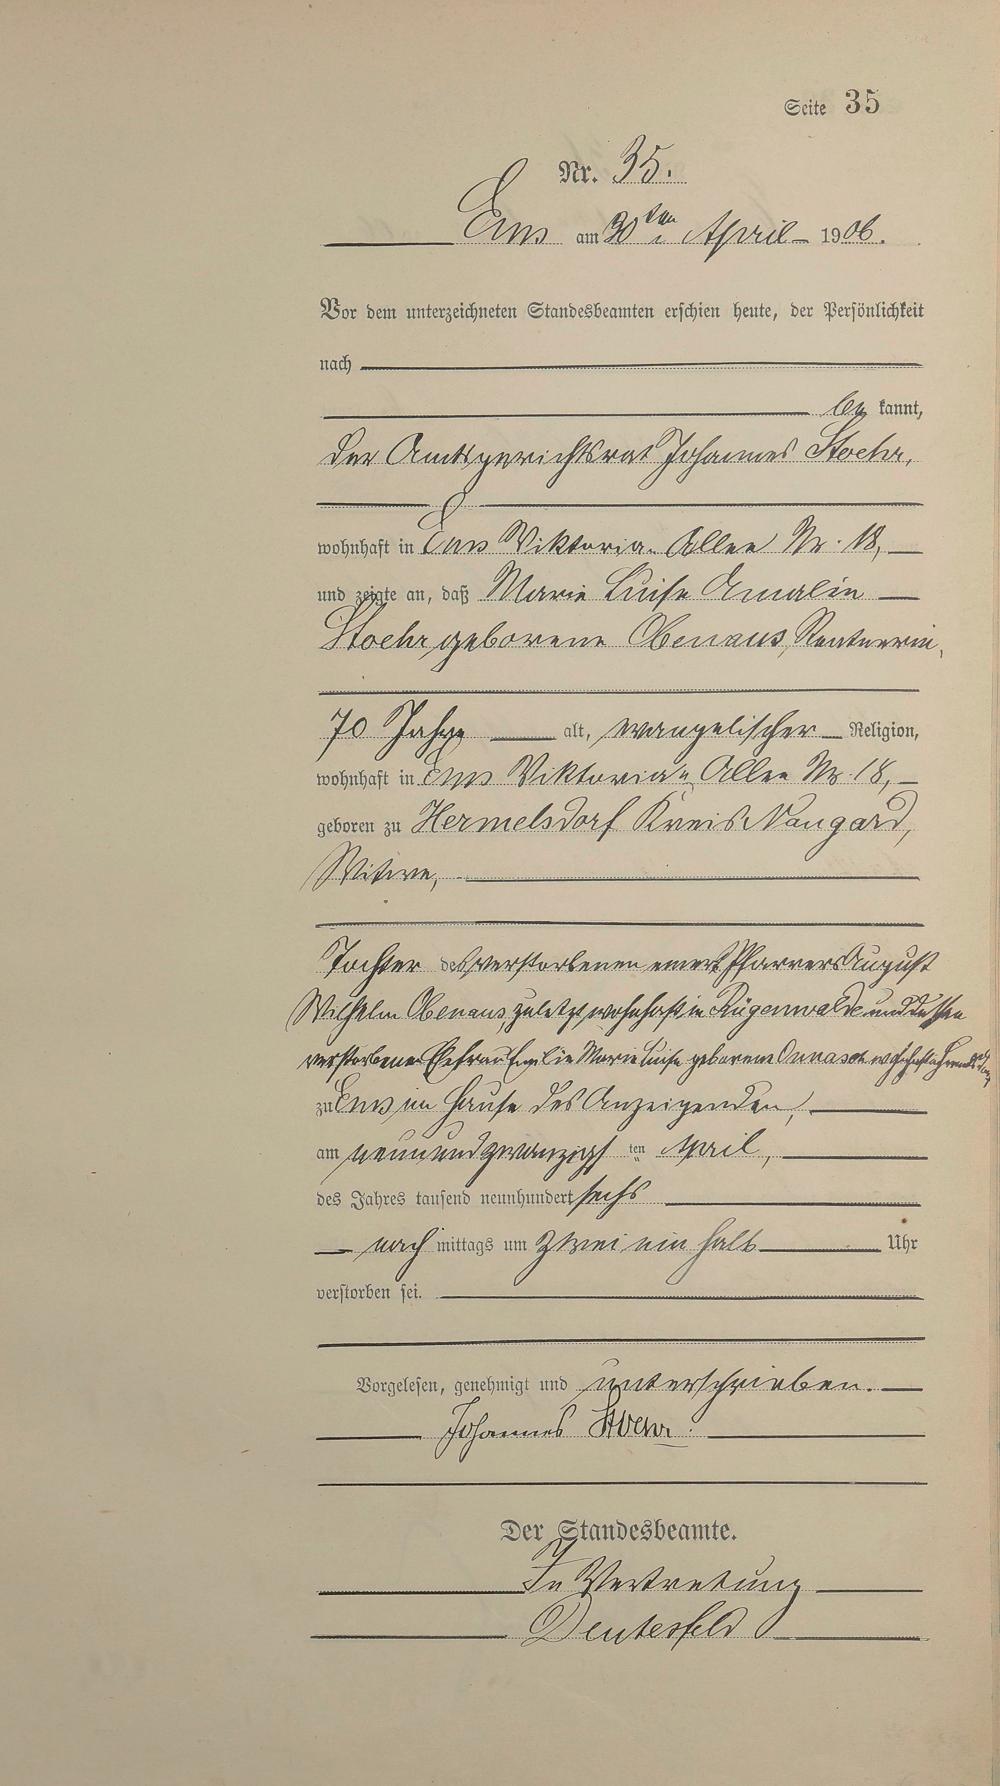 Seite 35
Nr. 35.
Ems am 30ten April 1906.
Vor dem unterzeichneten Standesbeamten erschien heute, der Persönlichkeit
nach
be kannt,
der Amtsgerichtsrat Johannes Stoehr,
wohnhaft in Ems Viktoria-Allee Nr. 18,
und zeigte an, daß Marie Luise Amalie
Stoehr, geborene Obenaus, Rentnerin,
70 Jahre alt, evangelischer Religion,
wohnhaft in Ems Viktoria-Allee Nr. 18,
geboren zu Hermelsdorf Kreis Naugard,
Witwe,
Tochter des verstorbenen emerit Pfarrers August
Wilhelm Obenaus, zuletzt wohnhaft in Rügenwalde und dessen
verstorbenen Ehefrau Emilie Marie Luise geborene Onnasch
zu Ems im Hause des Anzeigenden,
am neunundzwanzigs ten April,
des Jahres tausend neunhundert sechs
nach mittags um zwei ein halb Uhr
verstorben sei.
Vorgelesen, genehmigt und unterschrieben.
Johannes Stoehr.
Der Standesbeamte.
In Vertretung
Deutesfeld